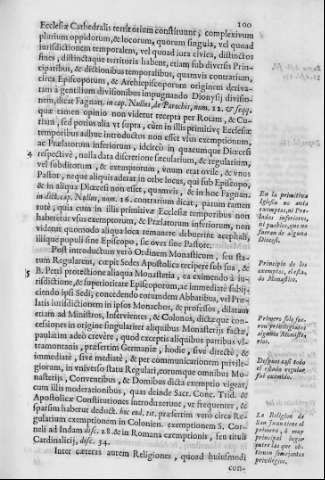 100
Ecclesiæ Cathedralis territorium constituunt, complexivum
plurium oppidorum, & locorum, quorum singula, vel quoad
iurisdictionem temporalem, vel quoad iura civica, distinctos
fines, distinctaque territoria habent, etiam sub diversis Prin-
cipatibus, & dictionibus temporalibus, quamvis contrarium,
circa Episcoporum, & Archiepiscoporum originem deriva-
tam à gentilium divisionibus impugnando Dionysij divisio-
nem, dicat Fagnan. in cap. Nullus, de Parochis, num. 12. & seqq.
quæ tamen opinio non videtur recepta per Rotam, &
sed potius alia ut supra, cum in illis primitivę Ecclesiæ
temporibus adhuc introductus non esset usus exemptionum,
ac Prælatorum inferiorum, idcircò in quacumque Diœcesi
4 respectivè, nulla data discretione sæcularium, & regularium,
vel subditorum, & exemptorum, unum erat ovile, & unus
Pastor, neque aliquis aderat in orbe locus, qui sub Episcopo,
& in aliqua Diœcesi non esset, quamvis, & in hoc Fagnan.
in dict. cap. Nullus, num. 16. contrarium dicat, parum tamen
quia cum in illis primitivæ Ecclesiæ temporibus non
haberetur usus exemptorum, & Prælatorum inferiorum, non
videtur quomodo aliqua loca remanere debuerint acephali,
illique populi sine Episcopo, sic oves sine Pastore.
Post introductum verò Ordinem Monasticum, seu sta-
tum Regularem, cœpit Sedes Apostolica recipere sub sua, &
5 B. Petri protectione aliqua Monasteria, ea eximendo à iu-
risdictione, & superioritate Episcoporum, ac immediatè subij-
ciendo ipsi Sedi, concedendo eorumdem Abbatibus, vel Præ-
latis iurisdictionem in ipsos Monachos, & professos, dilatam
etiam ad Ministros, Inservientes, & Colonos, dictæque con-
cessiones in origine singulariter aliquibus Monasterijs factæ,
paulatim adeò crevêre, quod exceptis aliquibus partibus vl-
tramontanis, præsertim Germaniæ, hodie, sive directè, &
immediatè, sivè mediatè, & per communicationem privile-
giorum, in vniverso statu Regulari, eorumque omnibus Mo-
nasterijs, Conventibus, & Domibus dicta exemptio vigeat,
cum illis moderationibus, quas deinde Sacr. Conc. Trid. &
Apostolicæ Constitutiones introduxerunt, ut frequenter, &
sparsim habetur deduct. hoc eod. tit. præsertim verò circa Re-
gularium exemptionem in Colonien. exemptionem S. Cor-
nelij ad Indam disc. 28. & in Romana exemptionis, seu tituli
Cardinalicij, disc. 34.
Inter cæteras autem Religiones, quoad huiusmodi
con-
En la primitiva
Iglesia no auia
exemptos, ni Pre-
lados inferiores,
ni pueblos, que no
fueran de alguna
Diocesi.
Principio de los
exemptos, el esta-
do Monastico.
Primero solo fue-
ron privilegiados
algunos Monaste-
rios.
Despues casi todo
el estado regular
fuè eximido.
La Religion de
San Juan tiene el
primero, ò muy
principal lugar
entre las que ob-
tienen semejantes
privilegios.